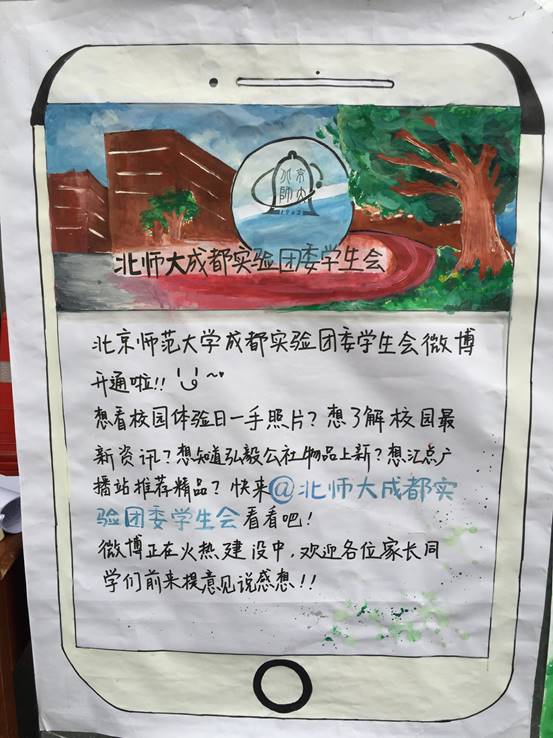 北京
師大
1902
北师大成都实验团委学生会
北京师范大学成都实验团委学生会微博
开通啦!!
想看校园体验日一手照片?想了解校园最
新资讯?想知道弘毅公社物品上新?想汇点广
播站推荐精品?快来@北师大成都实
验团委学生会看看吧!
微博正在火热建设中,欢迎各位家长同
学们前来提意见说感想!!